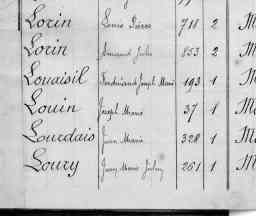 Lorin Louis Pierre 718 2 M
Lorin Armand Jules 853 2 M
Louaisil Ferdinand Joseph Marie 193 1 M
Louin Joseph Marie 37 1 M
Lourdais Jean Marie 328 1 M
Loury Jean Marie Julien 261 1 M